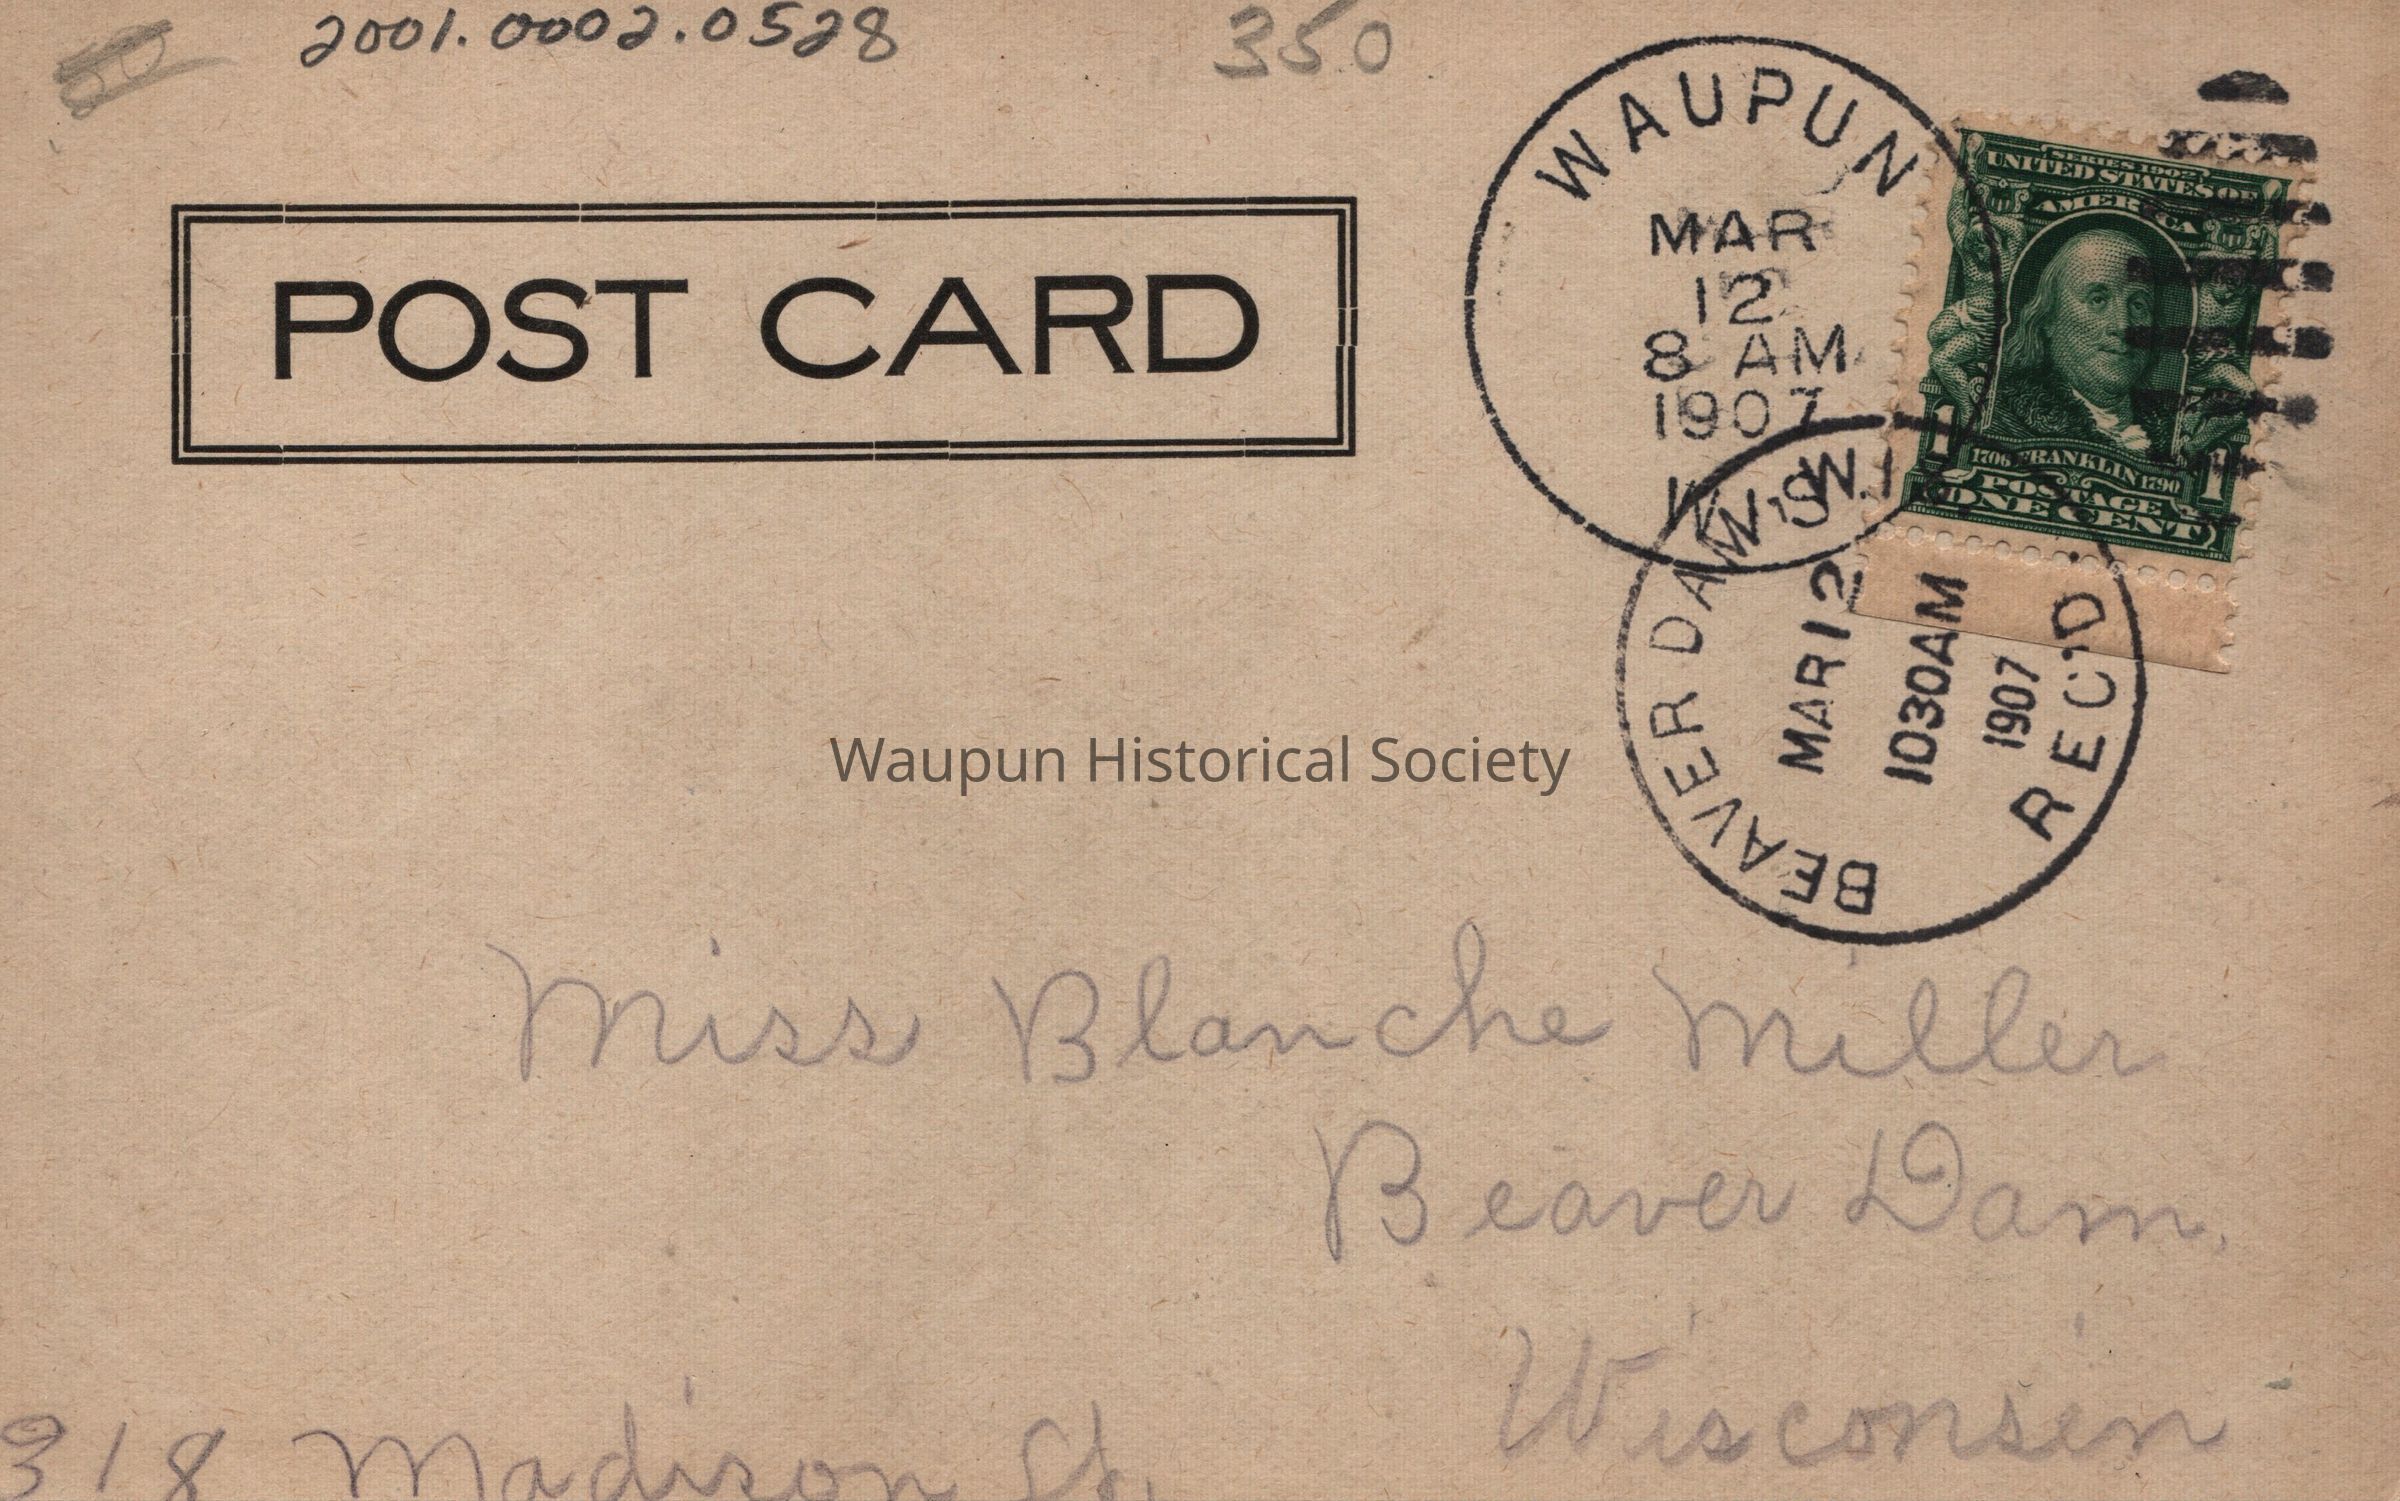 2001.0002.0528
350
WAUPUN
MAR
12
8 AM
1907
WIS.
SERIES 1902
UNITED STATES OF
AMERICA
1 1
1706 FRANKLIN 1790
POSTAGE
ONE CENT
POST CARD
BEAVER DAM W.I
MAR 12
1030AM
1907
REC'D.
Waupun Historical Society
Miss Blanche Miller
Beaver Dam.
Wisconsin
318 Madison St.